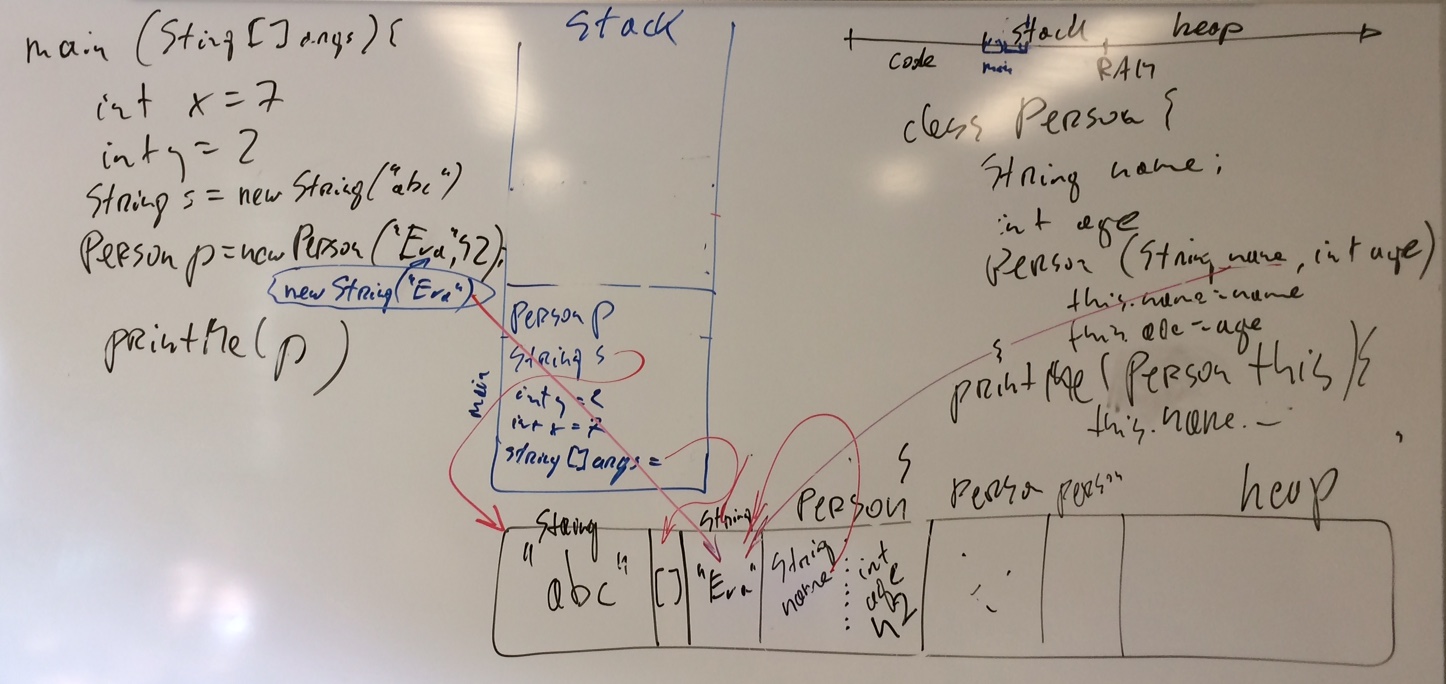 main (String[] args){
int x = 7
int y = 2
String s = new String("abc")
Person p = new Person("Eva", 42);
new String("Eva")
printMe(p)
Stack
Person p
String s
int y = 2
int x = 7
String [] args =
main
stack heap
code main RAM
class Person {
String name;
int age
Person (String name, int age)
this.name=name
this.age=age
}
printMe(Person this){
this.name.—
}
String String Person Person person heap
"abc" [] "Eva" String name int age 42